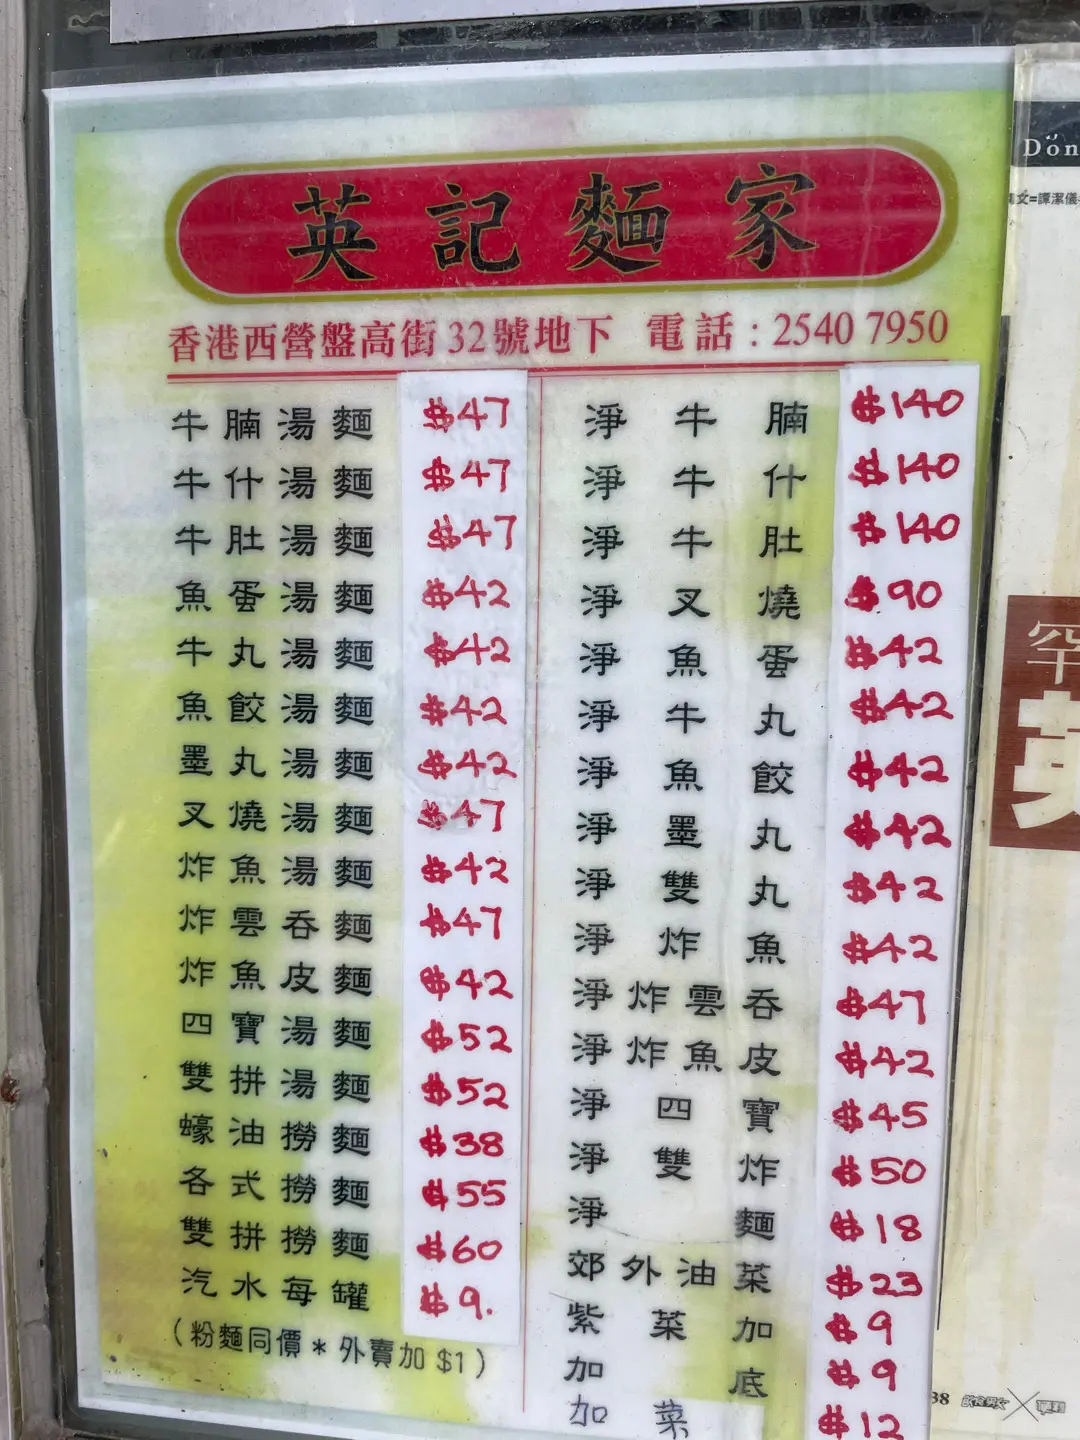 英記麵家
香港西營盤高街32號地下 電話：2540 7950
牛腩湯麵 $47
牛什湯麵 $47
牛肚湯麵 $47
魚蛋湯麵 $42
牛丸湯麵 $42
魚餃湯麵 $42
墨丸湯麵 $42
叉燒湯麵 $47
炸魚湯麵 $42
炸雲吞麵 $47
炸魚皮麵 $42
四寶湯麵 $52
雙拼湯麵 $52
蠔油撈麵 $38
各式撈麵 $55
雙拼撈麵 $60
汽水每罐 $9.
（粉麵同價＊外賣加$1）
淨牛腩 $140
淨牛什 $140
淨牛肚 $140
淨叉燒 $90
淨魚蛋 $42
淨牛丸 $42
淨魚餃 $42
淨墨丸 $42
淨雙丸 $42
淨炸魚 $42
淨炸雲吞 $47
淨炸魚皮 $42
淨四寶 $45
淨雙炸 $50
淨麵 $18
郊外油菜 $23
紫菜加 $9
加底 $9
加菜 $12
Dőn
文=譚潔儀
罕
英
38 飲食男女